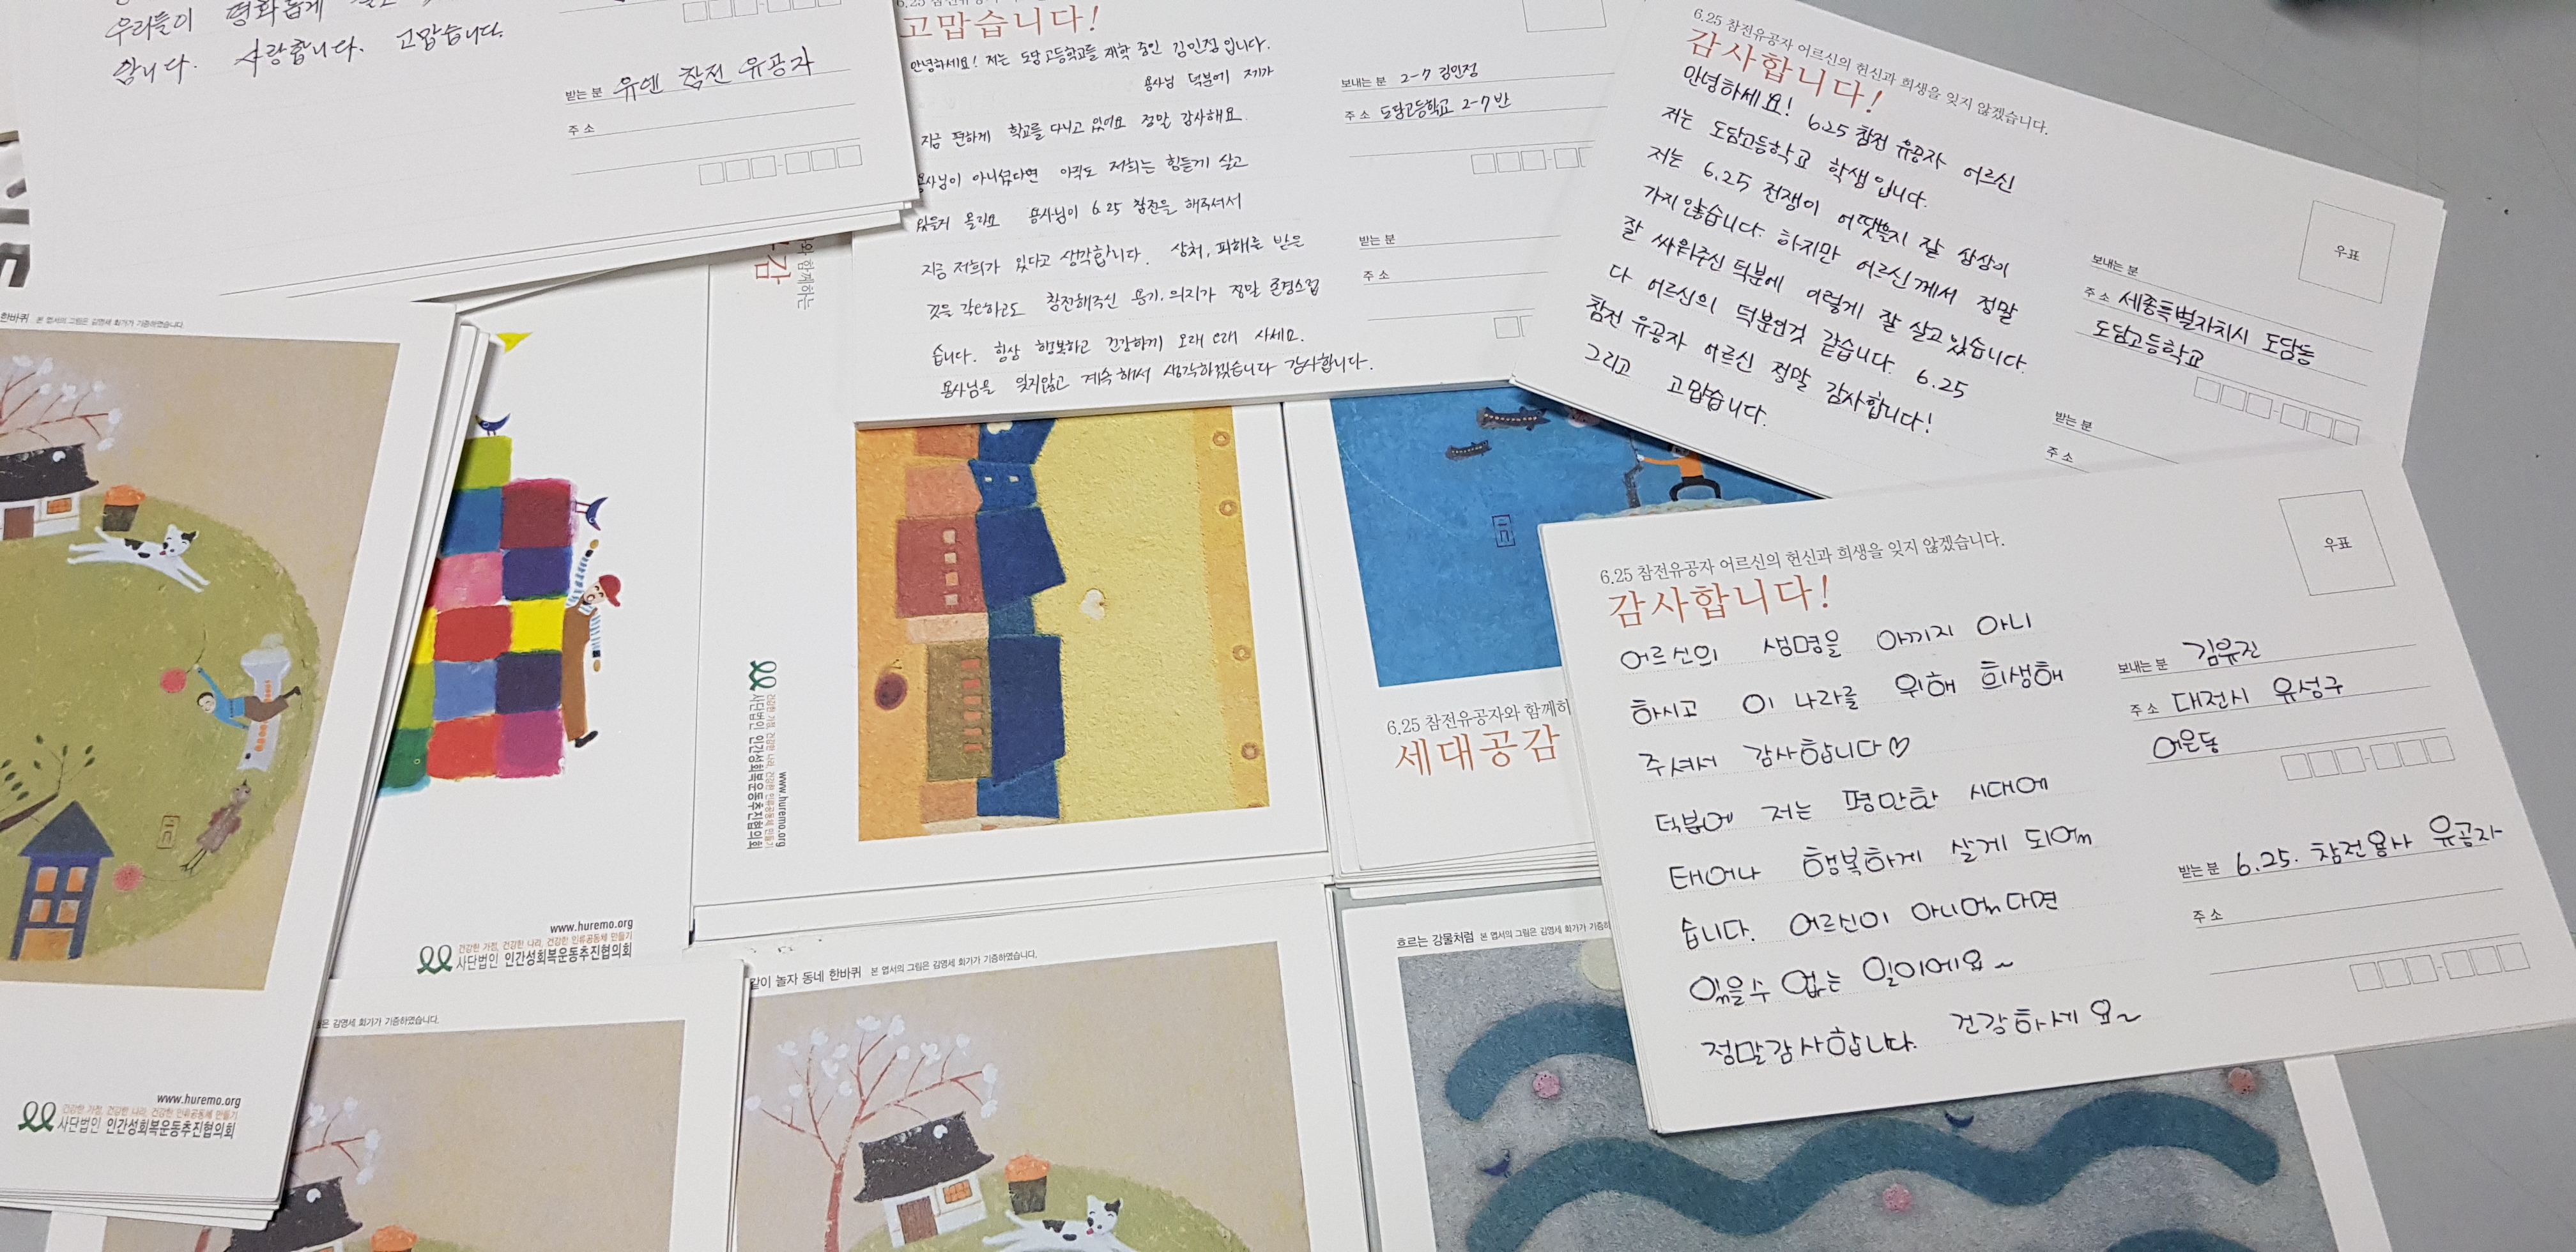 우리들이 평화롭게
합니다. 사랑합니다. 고맙습니다.
받는 분 유엔 참전 유공자
주 소
고맙습니다!
안녕하세요! 저는 도담고등학교를 재학 중인 김민정입니다.
용사님 덕분에 제가
지금 편하게 학교를 다니고 있어요 정말 감사해요
용사님이 아니셨다면 아직도 저희는 힘들게 살고
있을지 몰라요 용사님이 6.25 참전을 해주셔서
지금 저희가 있다고 생각합니다. 상처, 피해를 받은
것을 각오하고도 참전해주신 용기, 의지가 정말 존경스럽
습니다. 항상 행복하고 건강하게 오래 오래 사세요.
용사님을 잊지않고 계속해서 생각하겠습니다 감사합니다.
보내는 분 2-7 김민정
주 소 도담고등학교 2-7반
받는 분
주 소
6.25 참전유공자 어르신의 헌신과 희생을 잊지 않겠습니다.
감사합니다!
안녕하세요! 6.25 참전 유공자 어르신
저는 도담고등학교 학생입니다.
저는 6.25 전쟁이 어땟을지 잘 상상이
가지 않습니다. 하지만 어르신께서 정말
잘 싸워주신 덕분에 이렇게 잘 살고있습니다.
다 어르신의 덕분인것 같습니다. 6.25
참전 유공자 어르신 정말 감사합니다!
그리고 고맙습니다.
우표
보내는 분
주 소 세종특별자치시 도담동
도담고등학교
받는 분
주 소
6.25 참전유공자 어르신의 헌신과 희생을 잊지 않겠습니다.
감사합니다!
어르신의 생명을 아끼지 아니
하시고 이 나라를 위해 희생해
주셔서 감사합니다♡
덕분에 저는 평안한 시대에
태어나 행복하게 살게 되었
습니다. 어르신이 아니었다면
있을수 없는 일이에요~
정말감사합니다. 건강하세요~
우표
보내는 분 김유진
주 소 대전시 유성구
어은동
받는 분 6.25. 참전용사 유공자
주 소
한바퀴 본 엽서의 그림은 김영세 화가가 기증하였습니다.
www.huremo.org
건강한 가정, 건강한 나라, 건강한 인류공동체 만들기
사단법인 인간성회복운동추진협의회
www.huremo.org
건강한 가정, 건강한 나라, 건강한 인류공동체 만들기
사단법인 인간성회복운동추진협의회
와 함께하는
공감
www.huremo.org
건강한 가정, 건강한 나라, 건강한 인류공동체 만들기
사단법인 인간성회복운동추진협의회
6.25 참전유공자와 함께하
세대공감
은 김영세 화가가 기증하였습니다.
같이 놀자 동네 한바퀴 본 엽서의 그림은 김영세 화가가 기증하였습니다.
흐르는 강물처럼 본 엽서의 그림은 김영세 화가가 기증하